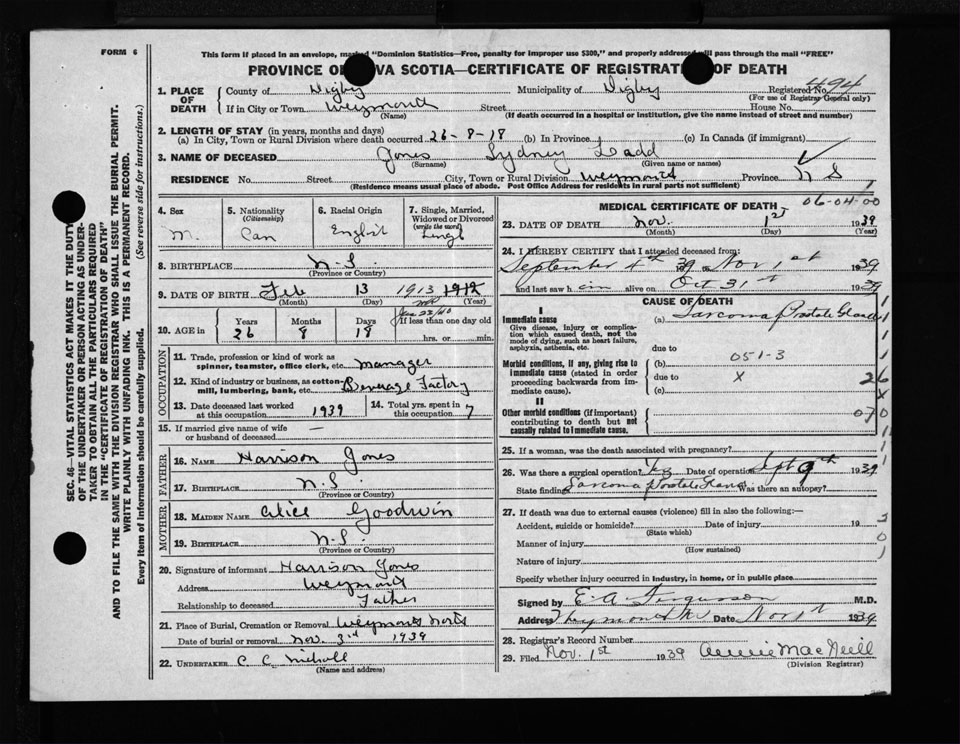 FORM 6
This form if placed in an envelope, marked "Dominion Statistics—Free, penalty for improper use $300," and properly addressed will pass through the mail "FREE"
PROVINCE OF NOVA SCOTIA—CERTIFICATE OF REGISTRATION OF DEATH
1. PLACE OF DEATH County of Digby Municipality of Digby Registered No. 494
(For use of Registrar General only)
If in City or Town Weymouth Street House No.
(Name) (If death occurred in a hospital or institution, give the name instead of street and number)
2. LENGTH OF STAY (in years, months and days)
(a) In City, Town or Rural Division where death occurred 26-8-18 (b) In Province (c) In Canada (if immigrant)
3. NAME OF DECEASED Jones Sydney Ladd
(Surname) (Given name or names)
RESIDENCE No. Street City, Town or Rural Division Weymouth Province N S
(Residence means usual place of abode. Post Office Address for residents in rural parts not sufficient)
4. Sex M.
5. Nationality (Citizenship) Can
6. Racial Origin English
7. Single, Married, Widowed or Divorced (write the word) Singl
8. BIRTHPLACE N.S.
(Province or Country)
9. DATE OF BIRTH Feb 13 1913 1912
(Month) (Day) (Year)
Jan 23/40
10. AGE in Years Months Days If less than one day old
26 8 18 hrs. or min.
OCCUPATION
11. Trade, profession or kind of work as spinner, teamster, office clerk, etc. Manager
12. Kind of industry or business, as cotton-mill, lumbering, bank, etc. Beverage Factory
13. Date deceased last worked at this occupation 1939
14. Total yrs. spent in this occupation 7
15. If married give name of wife or husband of deceased —
FATHER
16. NAME Harrison Jones
17. BIRTHPLACE N.S.
(Province or Country)
MOTHER
18. MAIDEN NAME Alice Goodwin
19. BIRTHPLACE N.S.
(Province or Country)
20. Signature of informant Harrison Jones
Address Weymouth
Relationship to deceased Father
21. Place of Burial, Cremation or Removal Weymouth North
Date of burial or removal Nov. 3rd 1939
22. UNDERTAKER C C
(Name and address)
MEDICAL CERTIFICATE OF DEATH
06-04-00
23. DATE OF DEATH Nov. 1st 1939
(Month) (Day) (Year)
24. I HEREBY CERTIFY that I attended deceased from:
September 4th 39 to Nov 1st 1939
and last saw him alive on Oct 31st 1939
CAUSE OF DEATH
I
Immediate cause (a) Sarcoma Prostate Gland
Give disease, injury or complication which caused death, not the mode of dying, such as heart failure, asphyxia, asthenia, etc.
due to
Morbid conditions, if any, giving rise to immediate cause (stated in order proceeding backwards from immediate cause).
(b) 051-3
due to X
(c)
26
X
II
Other morbid conditions (if important) contributing to death but not causally related to immediate cause.
07
25. If a woman, was the death associated with pregnancy?
26. Was there a surgical operation? Yes Date of operation Sept 9th 1939
State finding Sarcoma Prostate Gland Was there an autopsy?
27. If death was due to external causes (violence) fill in also the following:—
Accident, suicide or homicide? Date of injury 19
(State which)
Manner of injury
(How sustained)
Nature of injury
Specify whether injury occurred in industry, in home, or in public place
Signed by E. A. Ferguson M.D.
Address Weymouth Date Nov 1 1939
28. Registrar's Record Number
29. Filed Nov. 1st 1939 Annie MacNeill
(Division Registrar)
SEC. 46—VITAL STATISTICS ACT MAKES IT THE DUTY
OF THE UNDERTAKER OR PERSON ACTING AS UNDERTAKER TO OBTAIN ALL THE PARTICULARS REQUIRED
IN THE "CERTIFICATE OF REGISTRATION OF DEATH"
AND TO FILE THE SAME WITH THE DIVISION REGISTRAR WHO SHALL ISSUE THE BURIAL PERMIT.
WRITE PLAINLY WITH UNFADING INK. THIS IS A PERMANENT RECORD.
Every item of information should be carefully supplied. (See reverse side for instructions.)